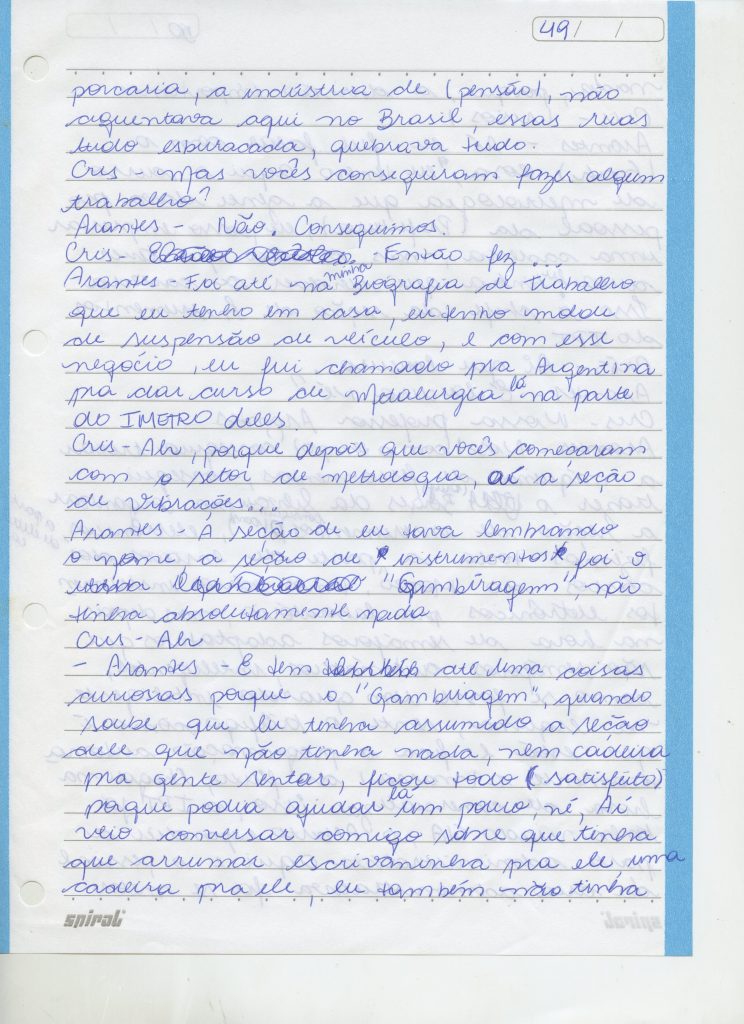 49 / /
porcaria, a indústria de (pensão), não
aguentava aqui no Brasil, essas ruas
tudo esburacada, quebrava tudo.
Cris - Mas vocês conseguiram fazer algum
trabalho?
Arantes - Não. Conseguimos.
Cris - - Então fez ...
Arantes - Foi até na minha Biografia de Trabalho
que eu tenho em casa, eu tenho
de suspensão de veículo, e com esse
negócio, eu fui chamado pra Argentina
pra dar curso de Metalurgia lá na parte
do IMETRO deles.
Cris - Ah, porque depois que vocês começaram
com o setor de metrologia, aí a seção
de vibrações...
Arantes - A seção de eu tava lembrando
o nome, a seção de instrumentos foi o
"Gambiragem" não
tinha absolutamente nada
Cris - Ah
- Arantes - E tem até uma coisas
curiosas porque o "Gambiragem", quando
soube que eu tinha assumido a seção
dele que não tinha nada, nem cadeira
pra gente sentar, ficou todo (satisfeito)
porque podia ajudar lá um pouco, né, Aí
veio conversar comigo sobre que tinha
que arrumar escrivaninha pra ele uma
cadeira pra ele, eu também não tinha
spiral